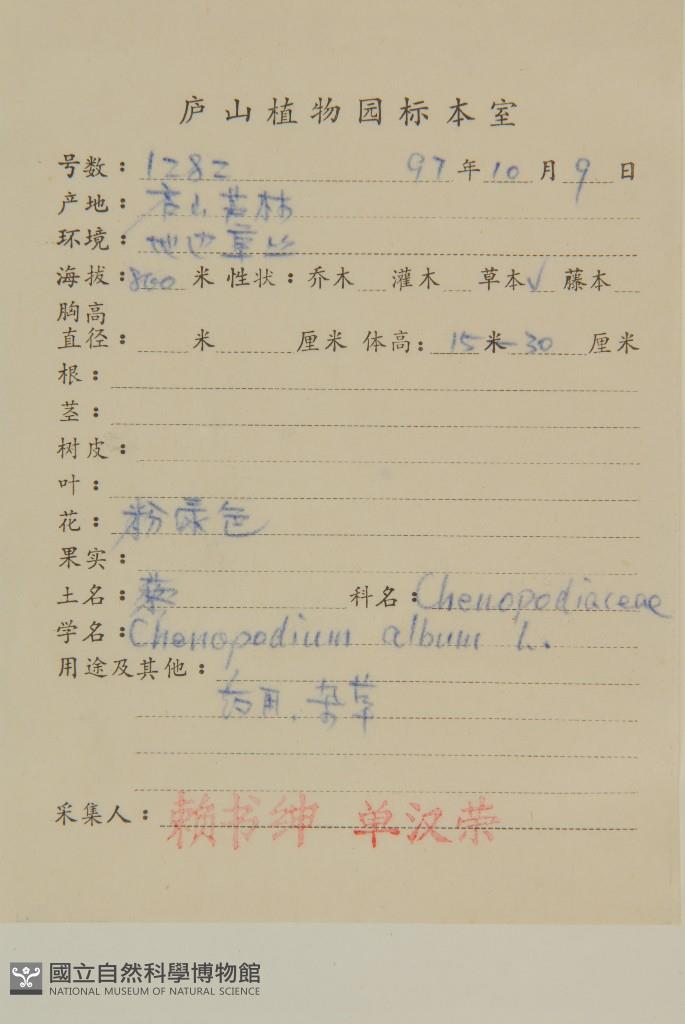 庐山植物园标本室
号数：1282 97年10月9日
产地：山林
环境：地边草丛
海拔：800米 性状：乔木 灌木 草本√ 藤本
胸高
直径： 米 厘米 体高： 15米-30 厘米
根：
茎：
树皮：
叶：
花：粉绿色
果实：
土名：藜 科名：Chenopodiaceae
学名：Chenopodium album L.
用途及其他：
药用、杂草
采集人：赖书绅 单汉荣
國立自然科學博物館
NATIONAL MUSEUM OF NATURAL SCIENCE